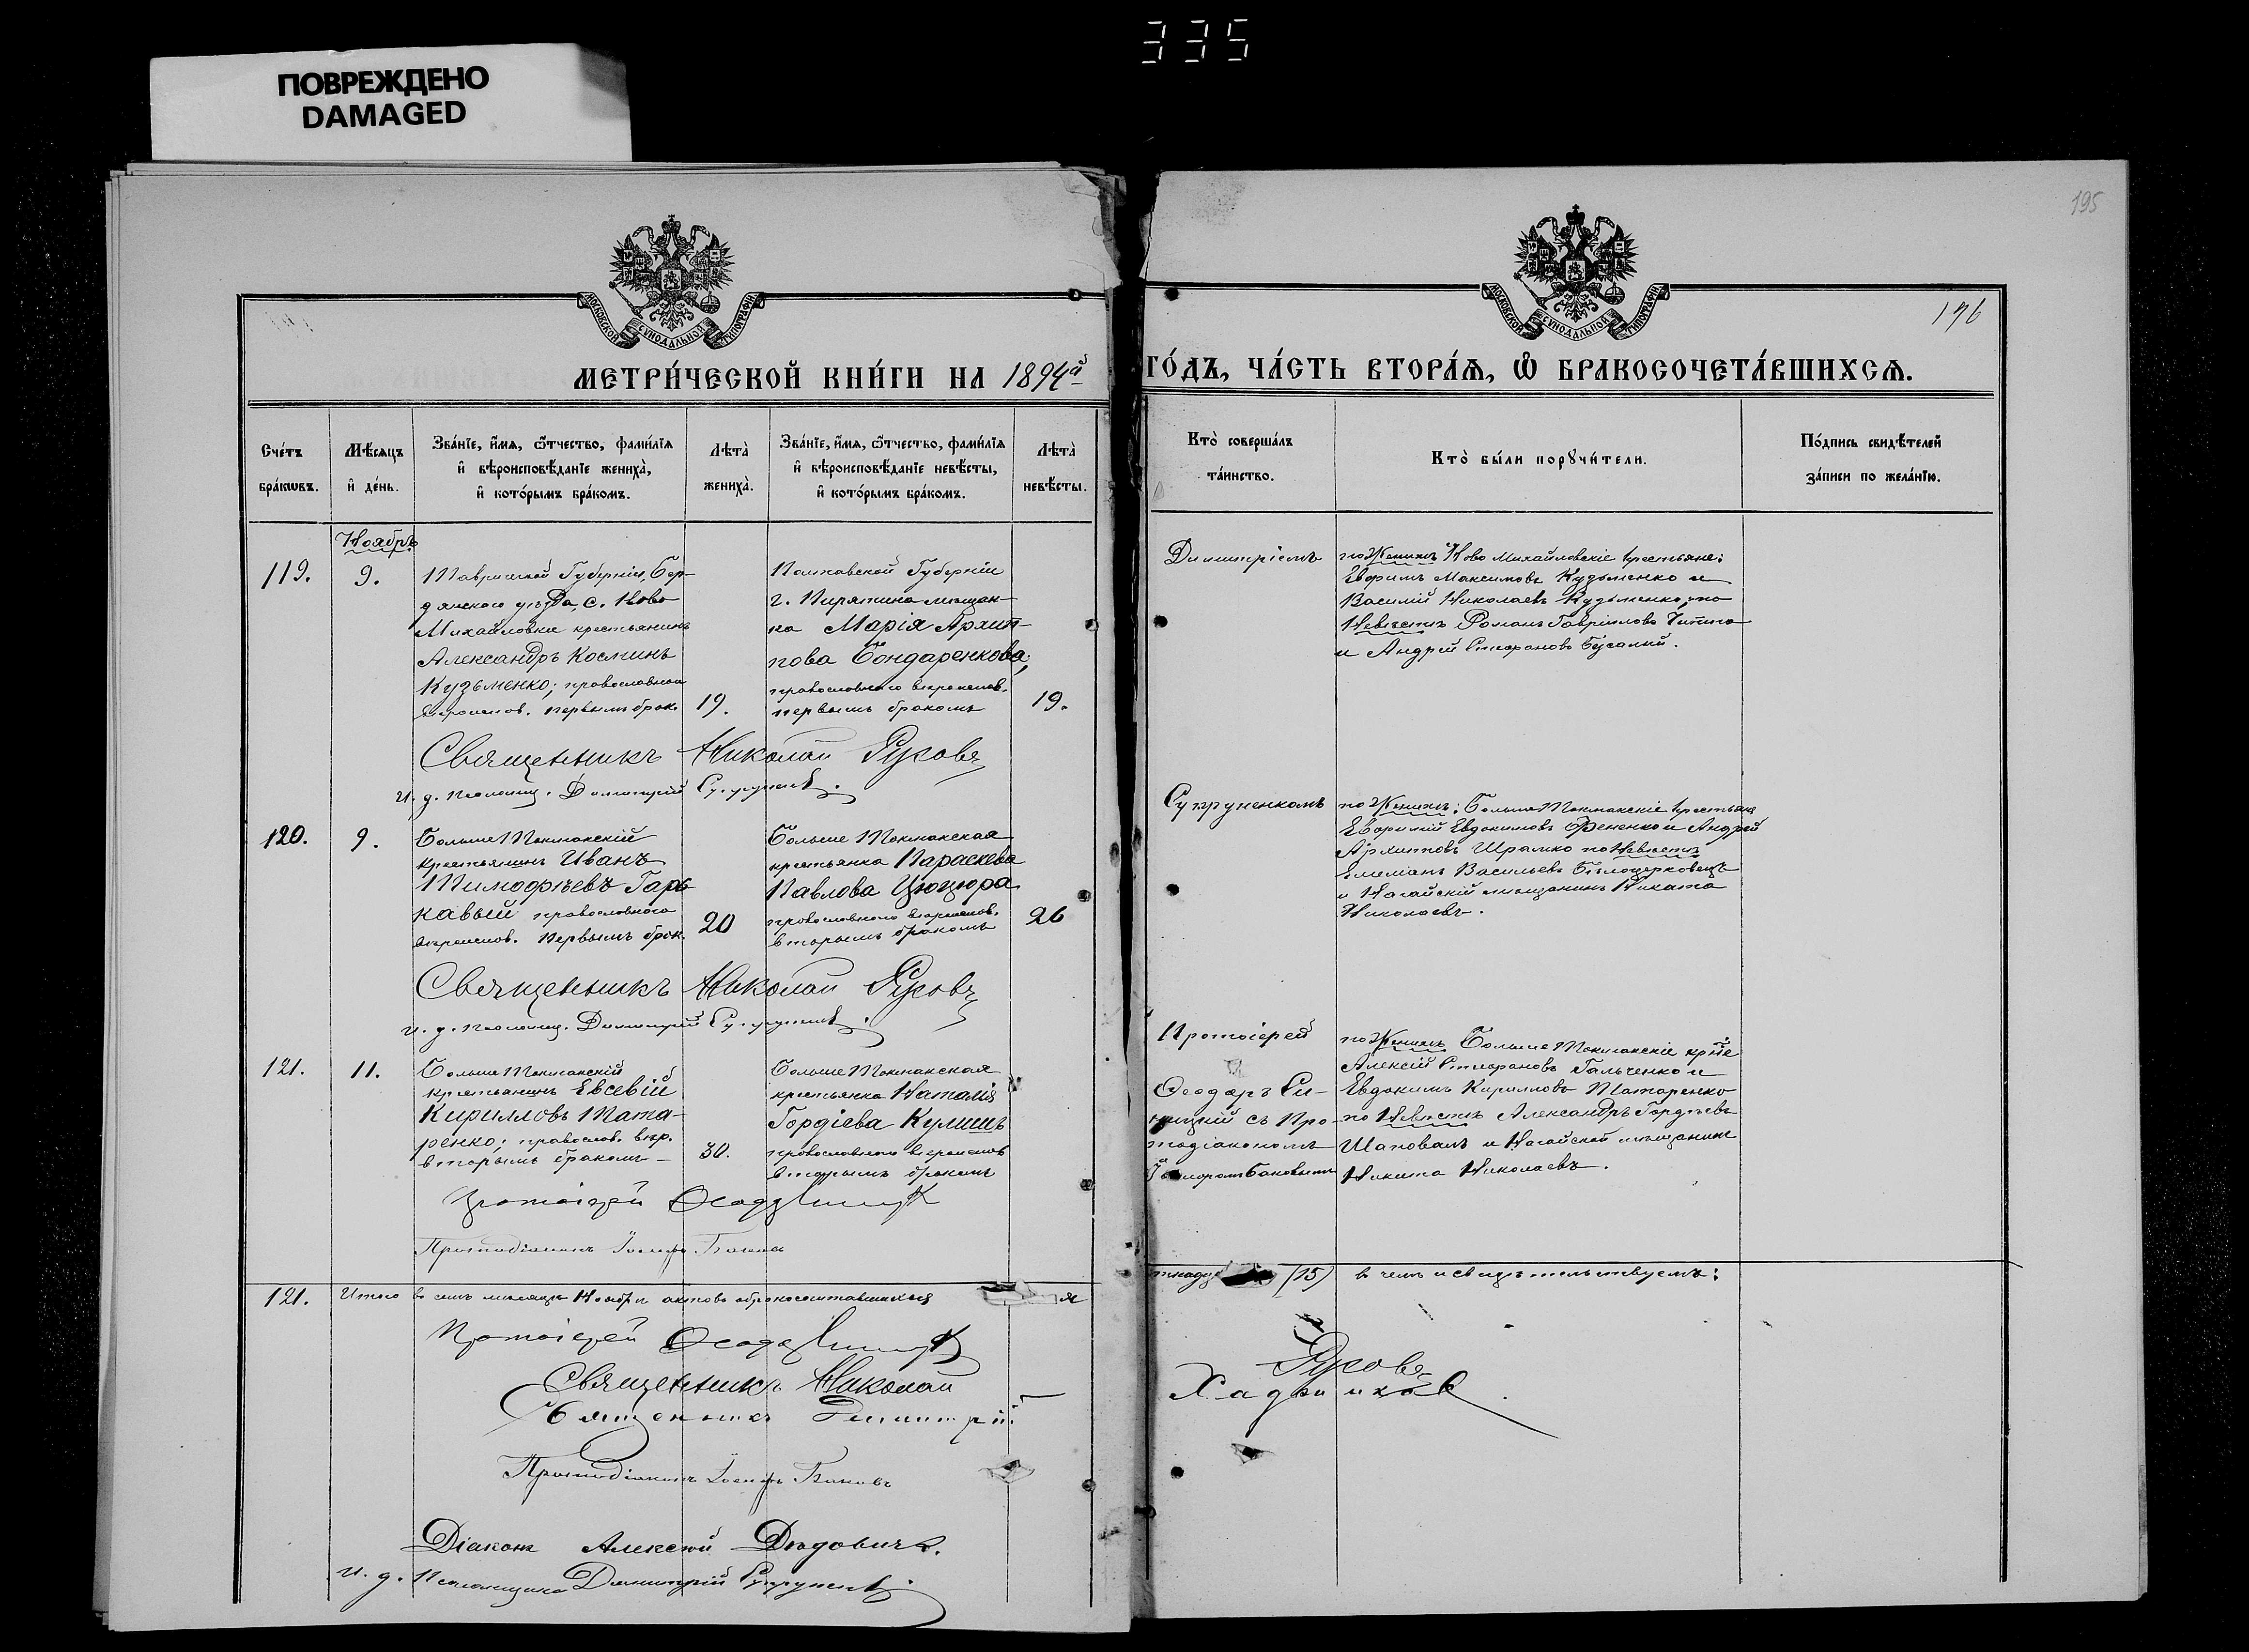 335
ПОВРЕЖДЕНО
DAMAGED
195
176
МОСКОВСКОЙ СУНОДАЛЬНОЙ ТИПОГРАФІИ
МОСКОВСКОЙ СУНОДАЛЬНОЙ ТИПОГРАФІИ
МЕТРИ́ЧЕСКОЙ КНИ́ГИ НА 1894й
ГО́ДЪ, ЧА́СТЬ ВТОРА́Я, Ѽ БРАКОСОЧЕТА́ВШИХСЯ.
Сче́тъ бра́кѡвъ.
Мѣ́сяцъ и҆ де́нь.
Зва́нїе, и҆́мя, ѻ҆́тчество, фами́лїя
и҆ вѣроисповѣ́данїе жениха̀,
и҆ кото́рымъ бра́комъ.
Лѣта̀ жениха̀.
Зва́нїе, и҆́мя, ѻ҆́тчество, фами́лїя
и҆ вѣроисповѣ́данїе невѣ́сты,
и҆ кото́рымъ бра́комъ.
Лѣта̀ невѣ́сты.
Кто̀ соверша́лъ
та́инство.
Кто̀ бы́ли порꙋчи́тели.
По́дпись свидѣ́телей
за́писи по жела́нїю.
Ноябрь
119.
9.
Таврической Губерніи, Бер-
дянского уѣзда, с. Ново
Михайловки крестьянинъ
Александръ Косминъ
Кузьменко; православнаго
вѣроиспов. первымъ брак.
19.
Полтавской Губерніи
г. Пирятина мѣщан-
ка Марія Архип-
пова Бондаренкова;
православнаго вѣроиспов.
первымъ бракомъ
19.
Димитріемъ
по Женихѣ Ново Михайловскіе крестьяне:
Ефимъ Максимовъ Кузьменко и
Василій Николаевъ Кузьменко; по
Невѣстѣ Романъ Гавріиловъ
и Андрей Стефановъ
Священникъ Николай Русовъ
и. д. псаломщ. Димитрій
120.
9.
Больше Токмакскій
крестьянинъ Иванъ
Тимофѣевъ Гарь
кавый православнаго
вѣроиспов. Первымъ брак.
20
Больше Токмакская
крестьянка Параскева
Павлова Цюцюра
православнаго вѣроиспов.
вторымъ бракомъ
26
Супруненкомъ
по Женихѣ: Больше Токмакскіе крестьяне
Евфимій Евдокимовъ Фененко и Андрей
Архиповъ Шрамко по Невѣстѣ
Емельянъ Васильевъ Бѣлоцерковецъ
и Ногайскій мѣщанинъ Никита
Николаевъ.
Священникъ Николай Русовъ
и. д. псаломщ. Димитрій
121.
11.
Больше Токмакскій
крестьянинъ Евсевій
Кирилловъ Тата-
ренко; православ. вѣр.
вторымъ бракомъ
30.
Больше Токмакская
крестьянка Наталія
Гордіева Кулишъ
православнаго вѣроиспов
вторымъ бракомъ
Протоіерей
Ѳеодоръ Си-
ницкій съ Про-
тодіакономъ
по Женихѣ Больше Токмакскіе кр-не
Алексій Стефановъ Гальченко и
Евдокимъ Кирилловъ Татаренко
по Невѣстѣ Александръ Гордѣевъ
Шаповалъ и Ногайской мѣщанинъ
Никита Николаевъ.
Протоіерей Ѳеодоръ
Протодіаконъ Іосифъ
121.
Итого въ семъ мѣсяцѣ Ноябрѣ актовъ о бракосочетавшихся
(15) въ чемъ и свидѣтельствуемъ:
Протоіерей Ѳеодоръ
Священникъ Николай Русовъ
Священникъ Димитрій Хаджиновъ
Протодіаконъ Іосифъ Баковъ
Діаконъ Алексій Дѣдовичъ.
и. д. Псаломщика Димитрій